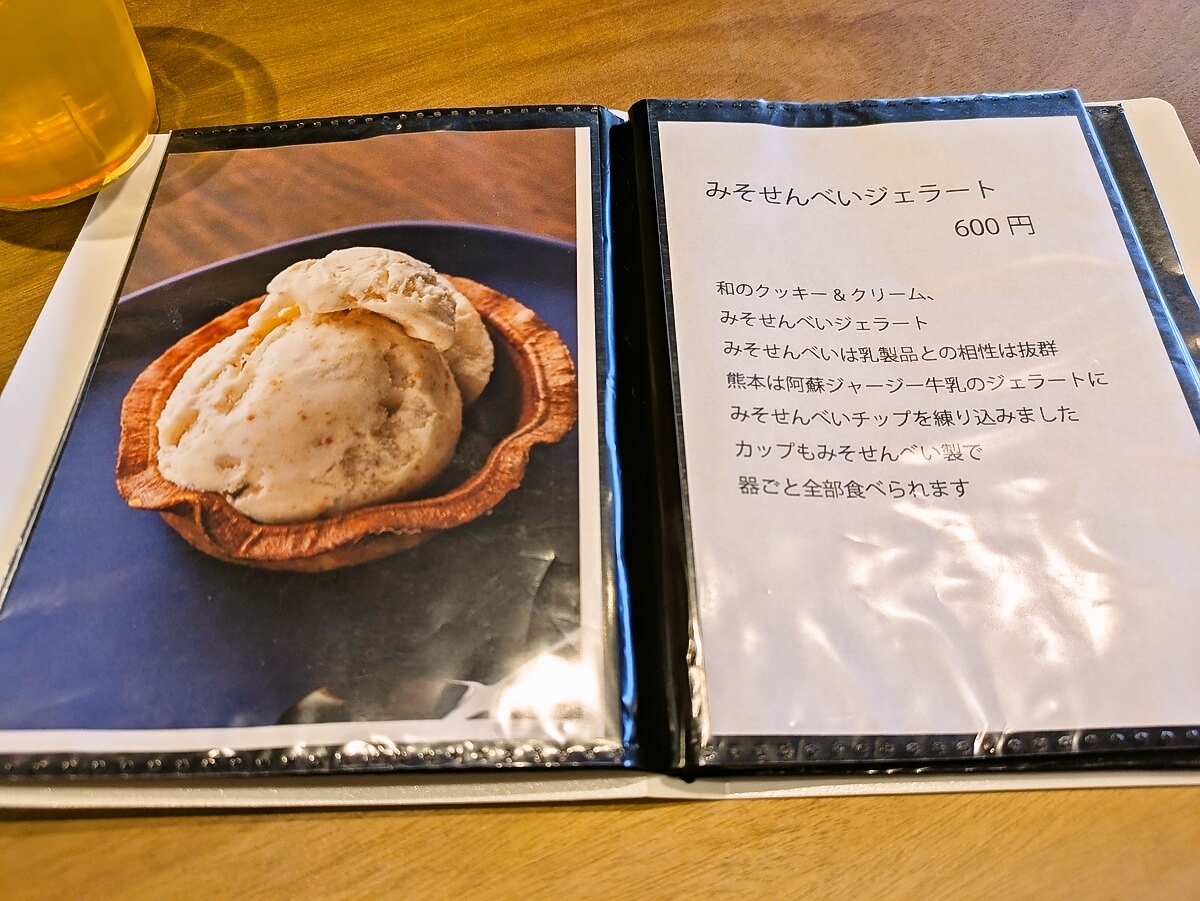 みそせんべいジェラート
600 円
和のクッキー & クリーム、
みそせんべいジェラート
みそせんべいは乳製品との相性は抜群
熊本は阿蘇ジャージー牛乳のジェラートに
みそせんべいチップを練り込みました
カップもみそせんべい製で
器ごと全部食べられます